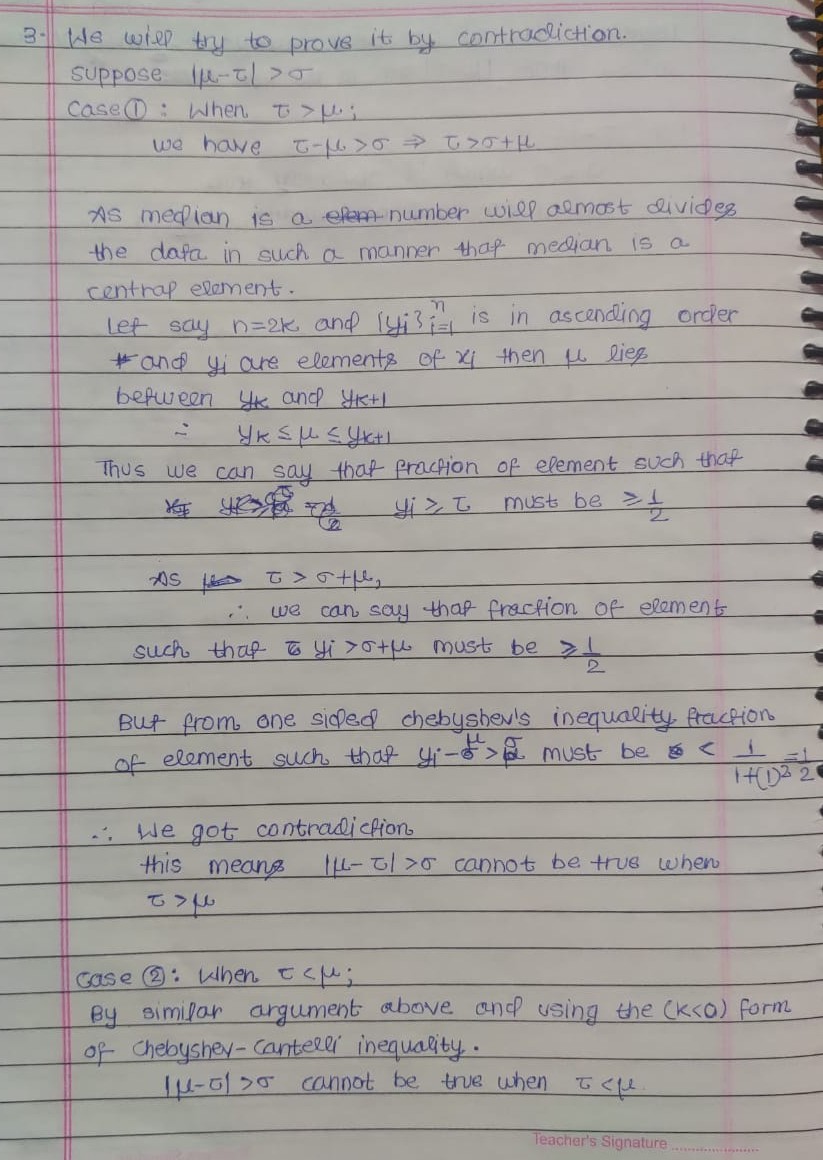 3. We will try to prove it by contradiction.
suppose |μ-τ| >σ
Case ① : When τ >μ;
we have τ-μ >σ ⇒ τ>σ+μ
As median is a elem number will almost divides
the data in such a manner that median is a
central element.
Let say n=2k and {yi}ⁿi=1 is in ascending order
and yi are elements of xi then μ lies
between yk and yk+1
∴ yk ≤ μ ≤ yk+1
Thus we can say that fraction of element such that
yi ≥ τ must be ≥ 1/2
As τ > σ+μ,
∴ we can say that fraction of element
such that yi >σ+μ must be ≥ 1/2
But from one sided chebyshev's inequality fraction
of element such that yi-μ>σ must be < 1/(1+(1)²) = 1/2
∴ We got contradiction
this means |μ-τ| >σ cannot be true when
τ >μ
Case ②: When τ <μ;
By similar argument above and using the (k<0) form
of Chebyshev-Cantelli inequality.
|μ-τ| >σ cannot be true when τ <μ.
Teacher's Signature ....................